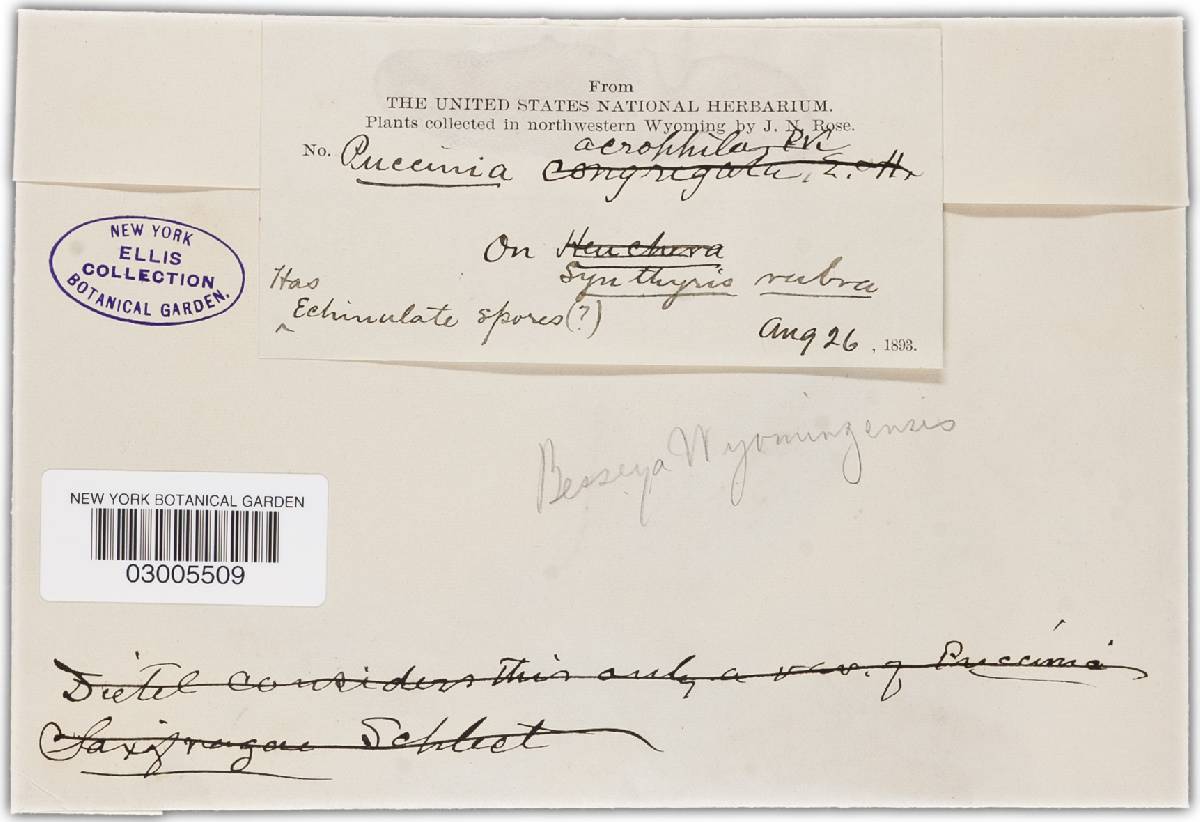 From
THE UNITED STATES NATIONAL HERBARIUM.
Plants collected in northwestern Wyoming by J. N. Rose.
acrophila, Pk
No. Puccinia congregata, E. & H.
On Heuchera
Synthyris rubra
Has
Echinulate spores (?)
Aug 26, 1893.
NEW YORK
ELLIS
COLLECTION
BOTANICAL GARDEN.
Besseya Wyomingensis
NEW YORK BOTANICAL GARDEN
03005509
Dietel considers this only a var. of Puccinia
Saxifragae Schlect